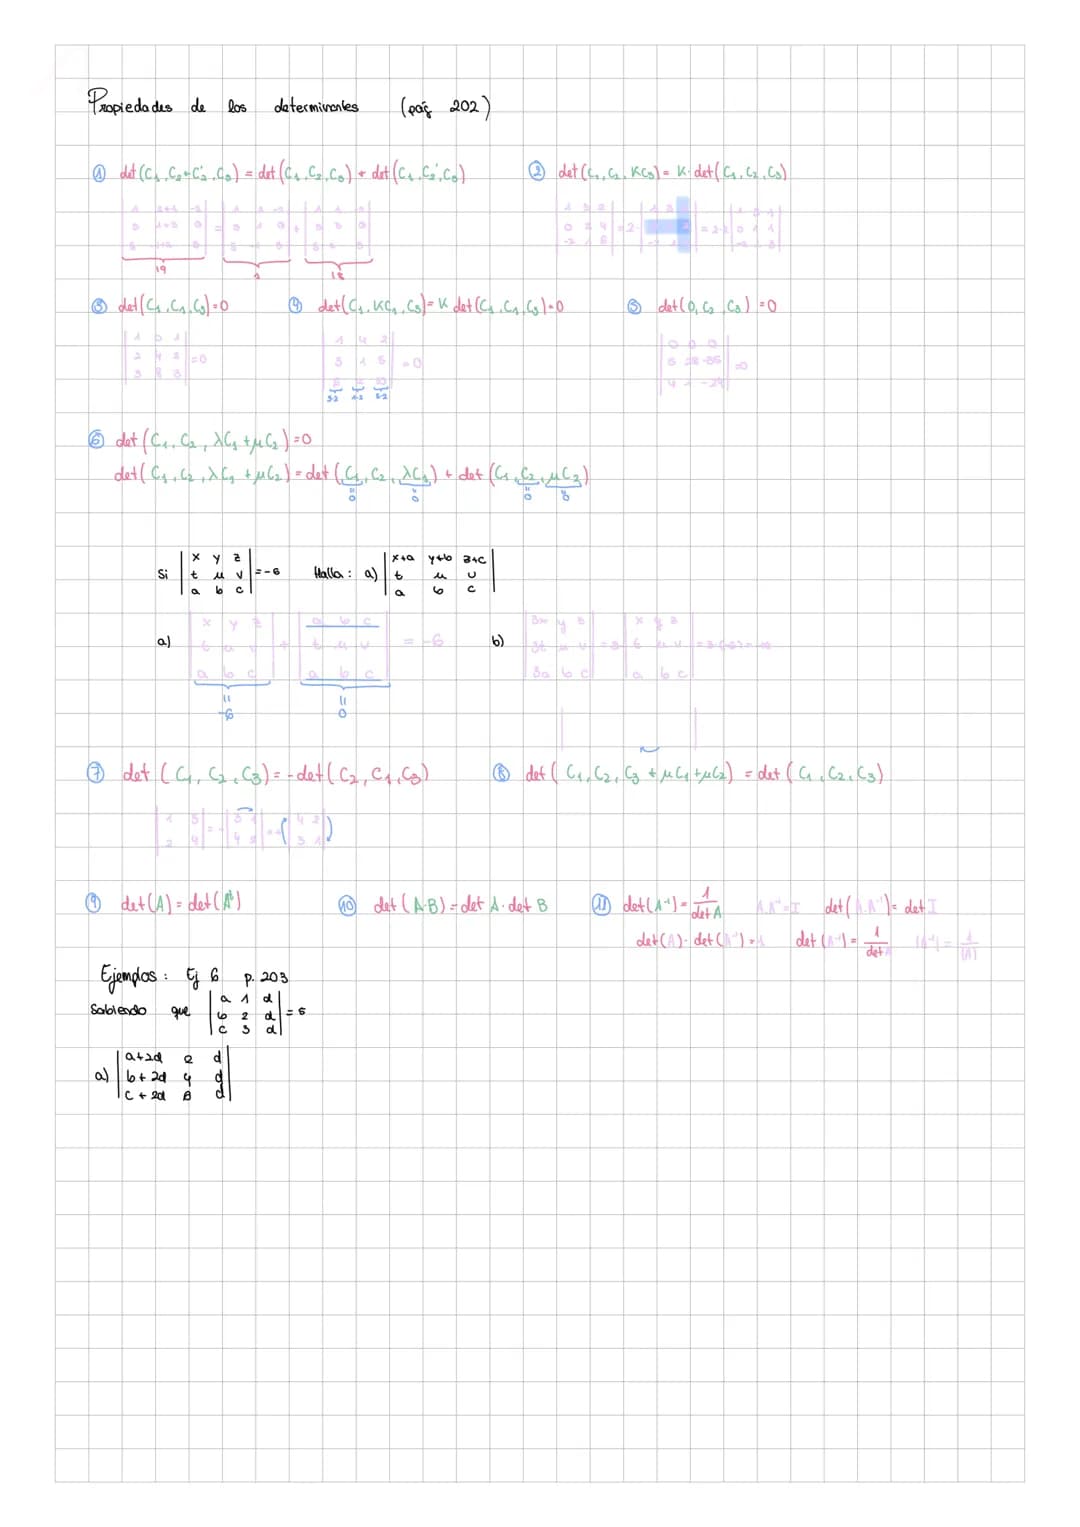 Propiedades de los determinantes (pág 202)
① det (C₁, C₂+C'₂, C₃) = det (C₁, C₂, C₃) + det (C₁, C₂', C₃)
② det (C₁, C₂, KC₃) = K · det (C₁, C₂, C₃)
19
18
③ det (C₁, C₁, C₃) = 0
④ det (C₁, KC₁, C₃) = K det (C₁, C₁, C₃) = 0
⑤ det (0, C₂, C₃) = 0
1 0 1
2 4 2 = 0
3 8 3
1 4 2
3 1 5 = 0
0 0 0
5 28 -35 = 0
⑥ det (C₁, C₂, λC₁ + μC₂) = 0
det (C₁, C₂, λC₁ + μC₂) = det (C₁, C₂, λC₁) + det (C₁, C₂, μC₂)
" 0 " 0 " 0 " 0
Si | x y z | t u v | a b c | = -6 Halla: a) | x+a y+b z+c | t u v | a b c |
a) | x y z | t u v | a b c | + | a b c | t u v | a b c | = -6
" -6 " 0
b) | 3x y z | 3t u v | 3a b c | = 3 · | x y z | t u v | a b c |
⑦ det (C₁, C₂, C₃) = - det (C₂, C₁, C₃)
⑧ det (C₁, C₂, C₃ + μC₁ + μC₂) = det (C₁, C₂, C₃)
| 1 3 | 2 4 | = - | 3 1 | 4 2 | = + ( | 4 2 | 3 1 | )
⑨ det (A) = det (Aᵗ)
⑩ det (A·B) = det A · det B
⑪ det (A⁻¹) = 1/det A A·A⁻¹ = I det (A·A⁻¹) = det I
det (A) · det (A⁻¹) = 1 det (A⁻¹) = 1/det A |A⁻¹| = 1/|A|
Ejemplos : Ej 6 p. 203
Sabiendo que | a 1 d | b 2 d | c 3 d | = 5
a) | a+2d 2 d | b+2d 4 d | c+2d 6 d |